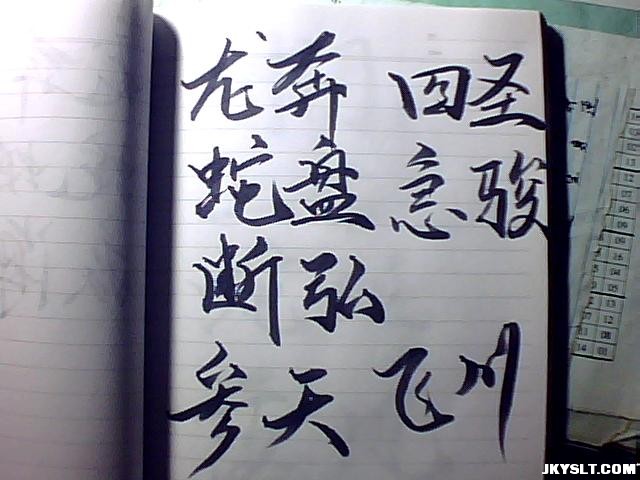 龙奔 四圣
蛇盘 急骏
断弘
参天 飞川
JKYSLT.COM